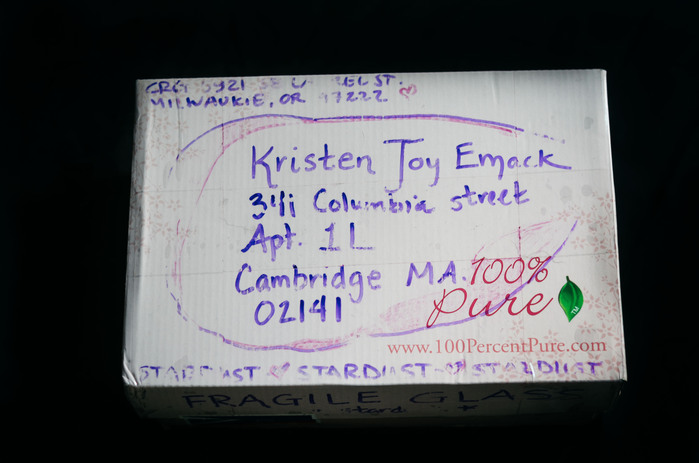 MILWAUKIE, OR 97222
Kristen Joy Emack
Columbia street
Apt. 1L
Cambridge MA.
02141
100%
Pure
TM
www.100PercentPure.com
STARDUST STARDUST STARDUST
FRAGILE GLASS